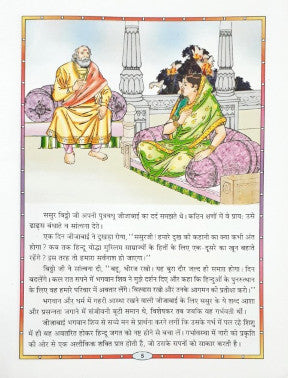 ससुर विट्ठो जी अपनी पुत्रवधू जीजाबाई का दर्द समझते थे। कठिन क्षणों में वे प्रायः उसे
ढाढ़स बंधाते व सांत्वना देते।
एक दिन जीजाबाई ने दुखड़ा रोया, "ससुरजी! हमारे दुख की कहानी का क्या कभी अंत
होगा? कब तक हिन्दू योद्धा मुस्लिम साम्राज्यों के हितों के लिए एक-दूसरे का खून बहाते
रहेंगे? इस तरह तो हमारा सर्वनाश हो जाएगा।"
विट्ठो जी ने सांत्वना दी, "बहू, धीरज रखो। यह बुरा दौर जल्द ही समाप्त होगा। दिन
बदलेंगे। कल रात सपने में भगवान शिव ने मुझे दर्शन दिए और कहा कि हिन्दुओं के पुनरुत्थान
के लिए वह हमारे परिवार में अवतार लेंगे। विश्वास रखो और उनके आगमन की प्रतीक्षा करो।"
भगवान और धर्म में गहरी आस्था रखने वाली जीजाबाई के लिए ससुर के ये शब्द आशा
और प्रसन्नता जगाने में संजीवनी बूटी समान थे, विशेषकर तब जबकि वह गर्भवती थीं।
जीजाबाई भगवान शिव से सच्चे मन से प्रार्थना करने लगीं कि उसके गर्भ में पल रहे शिशु
में ही वह अवतरित होकर हिन्दू जगत को नष्ट होने से बचा लें। गर्भावस्था में नारी को प्रकृति
की ओर से एक अलौकिक शक्ति प्राप्त होती है, जो उसके सपनों को साकार करती है।
5